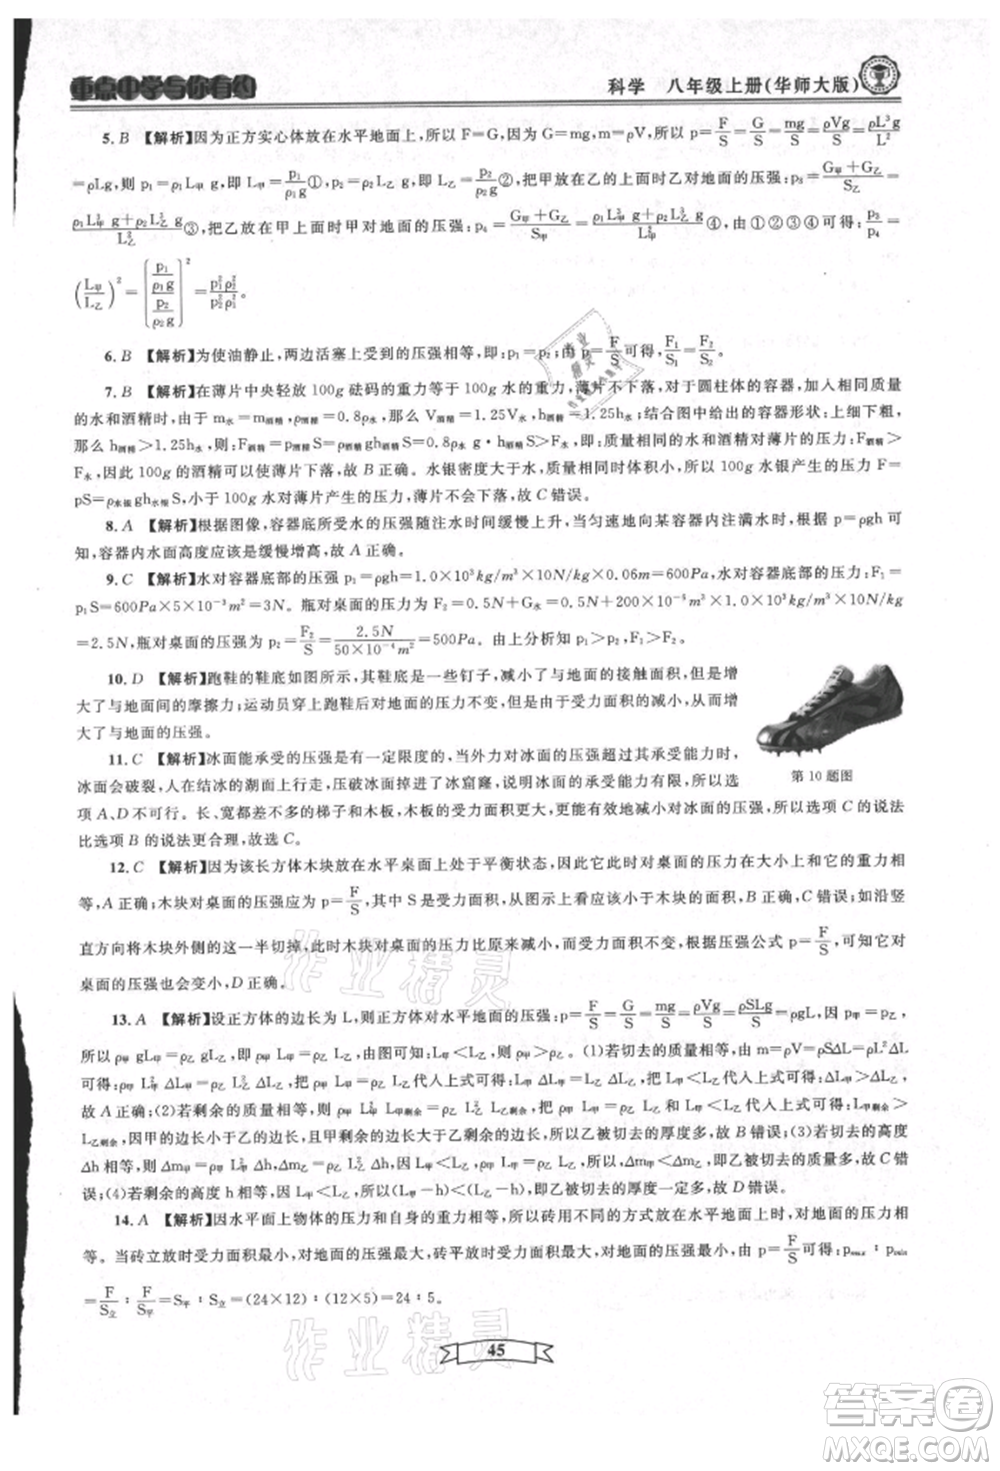 重点中学与你有约
科学 八年级上册(华师大版)
5. B 【解析】因为正方实心体放在水平地面上,所以 F=G,因为 G=mg,m=ρV,所以 p=F/S=G/S=mg/S=ρVg/S=ρL³g/L²
=ρLg,则 p₁=ρ甲L甲g,即 L甲=p₁/ρ₁g①,p₂=ρ乙L乙g,即 L乙=p₂/ρ₂g②,把甲放在乙的上面时乙对地面的压强:p₃=(G甲+G乙)/S乙=
(ρ₁L甲³g+ρ₂L乙³g)/L乙²③,把乙放在甲上面时甲对地面的压强:p₄=(G甲+G乙)/S甲=(ρ₁L甲³g+ρ₂L乙³g)/L甲²④,由①②③④可得:p₃/p₄=
(L甲/L乙)²=[(p₁/ρ₁g)/(p₂/ρ₂g)]²=p₁²ρ₂²/p₂²ρ₁²。
6. B 【解析】为使油静止,两边活塞上受到的压强相等,即:p₁=p₂;由 p=F/S 可得:F₁/S₁=F₂/S₂。
7. B 【解析】在薄片中央轻放 100g 砝码的重力等于 100g 水的重力,薄片不下落,对于圆柱体的容器,相同质量
的水和酒精,由于 m水=m酒精,ρ酒精=0.8ρ水,那么 V酒精=1.25V水,h酒精=1.25h水;结合图中容器的形状,上细下粗,
那么 h酒精>1.25h水 则:F酒精=p酒精S=ρ酒精gh酒精S>0.8ρ水g·1.25h水S>F水,所以 F酒精>
F水,因此 100g 的酒精可以使薄片下落,故 B 正确。水银密度大,相同质量时体积小,所以水银产生的压力 F=
pS=ρ水银gh水银S,小于 100g 水对薄片产生的压力,薄片不会下落,故 C 错误。
8. A 【解析】根据图像,容器底所受水的压强随注水时间缓慢上升,当匀速地向某容器内注满水时,根据 p=ρgh 可
知,容器内水面高度应该是缓慢增高,故 A 正确。
9. C 【解析】水对容器底部的压强 p₁=ρgh=1.0×10³kg/m³×10N/kg×0.06m=600Pa,水对容器底部的压力:F₁=
p₁S=600Pa×5×10⁻³m²=3N。瓶对桌面的压力 F₂=0.5N+G水=0.5N+200×10⁻³kg×10N/kg
=2.5N,瓶对桌面的压强 p₂=F₂/S=2.5N/(50×10⁻⁴m²)=500Pa。由上分析知 p₁>p₂,F₁>F₂。
10. D 【解析】跑鞋的鞋底如图所示,其鞋底是一些钉子,减小了与地面的接触面积,但增
大了与地面间的摩擦力;运动员穿上跑鞋对地面的压力不变,但受力面积变小,因此,增
大了与地面的压强。
第 10 题图
11. C 【解析】冰面能承受的压强有一定限度的,当外力对冰面的压强超过其承受能力时,
冰面会破裂,人在结冰的湖面上行走,压破冰面掉进了冰窟窿,说明冰的承受能力差,所以选
项 A、D 不可行。长、宽都差不多的梯子和木板,木板的受力面积更大,更能有效地减小对冰面的压强,所以选项 C 的说法
比选项 B 的说法更合理,故选 C。
12. C 【解析】因为该长方体木块放在水平桌面上处于平衡状态,因此它此时对桌面的压力在大小上和它的重力相
等,A 正确;木块对桌面的压强应为 p=F/S,其中 S 是受力面积,从图示上看应为 木块的底面积,B 正确,C 错误;如沿竖
直方向将木块外侧的这一半切掉,此时木块对桌面的压力比原来要小,而受力面积不变,根据压强公式 p=F/S,可知对桌
面的压强也会变小,D 正确。
13. A 【解析】设正方体的边长为 L,则正方体对水平地面的压强:p=F/S=G/S=mg/S=ρVg/S=ρSLg/S=ρgL,因 p甲=p乙,
所以 ρ甲gL甲=ρ乙gL乙,即:ρ甲L甲=ρ乙L乙。从图可知:L甲<L乙,所以 ρ甲>ρ乙。(1)若切去的质量相等,由 m=ρV=ρSΔL=ρL²ΔL
可得:ρ甲L甲²ΔL甲=ρ乙L乙²ΔL乙,将 ρ甲L甲=ρ乙L乙、L甲<L乙代入上式可得:ΔL甲>ΔL乙,即甲被切去的厚度
大,故 A 正确;(2)若剩余的质量相等,则 ρ甲L甲²L甲剩余=ρ乙L乙²L乙剩余,将 ρ甲L甲=ρ乙L乙、L甲<L乙代入上式可得:L甲剩余>
L乙剩余,因甲的边长小于乙的边长,且甲剩余的大于乙剩余的,所以乙被切去的厚度大,故 B 错误;(3)若切去的高度
Δh 相等,则 Δm甲=ρ甲L甲²Δh,Δm乙=ρ乙L乙²Δh,将 ρ甲L甲=ρ乙L乙、L甲<L乙代入上式可得:Δm甲<Δm乙,故 C 错
误;(4)若剩余的高度 h 相等,因 L甲<L乙,所以,(L甲-h)<(L乙-h),即乙被切去的厚度一定多,故 D 错误。
14. A 【解析】因水平面上物体的压力和自身的重力相等,所以砖用不同的方式放在水平地面上时,对地面的压力相
等。当砖立放时受力面积最小,对地面的压强最大,砖平放时受力面积最大,对地面的压强最小,由 p=F/S 可得:pmax∶pmin
=F/S立∶F/S平=S平∶S立=(24×12)∶(12×5)=24∶5。
45
作业精灵
作业精灵
答案圈
MXQE.COM